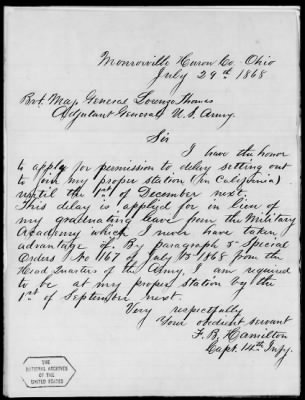 Monroeville Huron Co. Ohio
July 29th 1868
Bvt. Maj. General Lorenzo Thomas
Adjutant General U.S. Army.
Sir
I have the honor
to apply for permission to delay setting out
to join my proper station (in California)
until the 1st of December next.
This delay is applied for in lieu of
my graduating leave from the Military
Academy which I never have taken
advantage of. By paragraph 5 Special
Orders No 167 of July 15th 1868 from the
Head Quarters of the Army, I am required
to be at my proper station by the
1st of September next.
Very respectfully
Your obedient servant
F. B. Hamilton
Capt. 14th Infy.
THE
NATIONAL ARCHIVES
OF THE
UNITED STATES